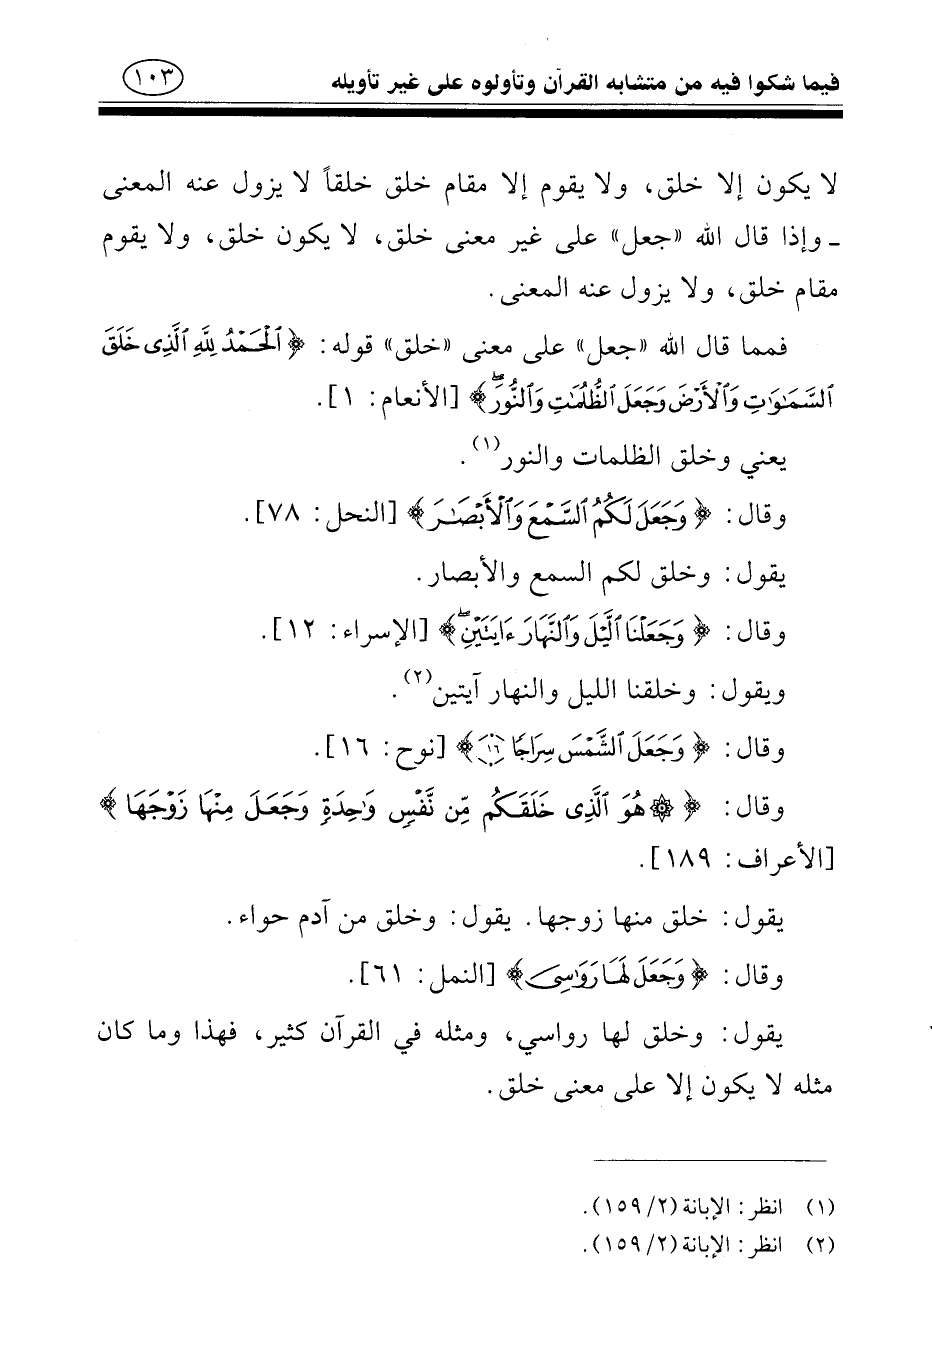 فيما شكوا فيه من متشابه القرآن وتأولوه على غير تأويله ١٠٣
لا يكون إلا خلق، ولا يقوم إلا مقام خلق خلقاً لا يزول عنه المعنى
ـ وإذا قال الله «جعل» على غير معنى خلق، لا يكون خلق، ولا يقوم
مقام خلق، ولا يزول عنه المعنى.
فمما قال الله «جعل» على معنى «خلق» قوله: ﴿ٱلْحَمْدُ لِلَّهِ ٱلَّذِى خَلَقَ
ٱلسَّمَـٰوَٰتِ وَٱلْأَرْضَ وَجَعَلَ ٱلظُّلُمَـٰتِ وَٱلنُّورَ ۖ﴾ [الأنعام: ١].
يعني وخلق الظلمات والنور(١).
وقال: ﴿وَجَعَلَ لَكُمُ ٱلسَّمْعَ وَٱلْأَبْصَـٰرَ﴾ [النحل: ٧٨].
يقول: وخلق لكم السمع والأبصار.
وقال: ﴿وَجَعَلْنَا ٱلَّيْلَ وَٱلنَّهَارَ ءَايَتَيْنِ ۖ﴾ [الإسراء: ١٢].
ويقول: وخلقنا الليل والنهار آيتين(٢).
وقال: ﴿وَجَعَلَ ٱلشَّمْسَ سِرَاجًا ١٦﴾ [نوح: ١٦].
وقال: ﴿۞ هُوَ ٱلَّذِى خَلَقَكُم مِّن نَّفْسٍ وَٰحِدَةٍ وَجَعَلَ مِنْهَا زَوْجَهَا﴾
[الأعراف: ١٨٩].
يقول: خلق منها زوجها. يقول: وخلق من آدم حواء.
وقال: ﴿وَجَعَلَ لَهَا رَوَٰسِىَ﴾ [النمل: ٦١].
يقول: وخلق لها رواسي، ومثله في القرآن كثير، فهذا وما كان
مثله لا يكون إلا على معنى خلق.
(١) انظر: الإبانة (٢/ ١٥٩).
(٢) انظر: الإبانة (٢/ ١٥٩).